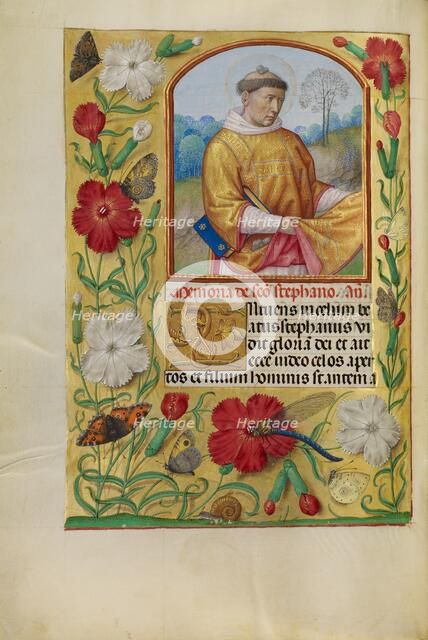 Heritage Heritage
Memoria de sco stephano. An
Heritage Heritage Heritage
ntuens in celum be
atus stephanus vi
dit gloriam dei et ait
ecce video celos aper
tos et filium hominis stantem a
Heritage Heritage
Heritage Heritage Heritage